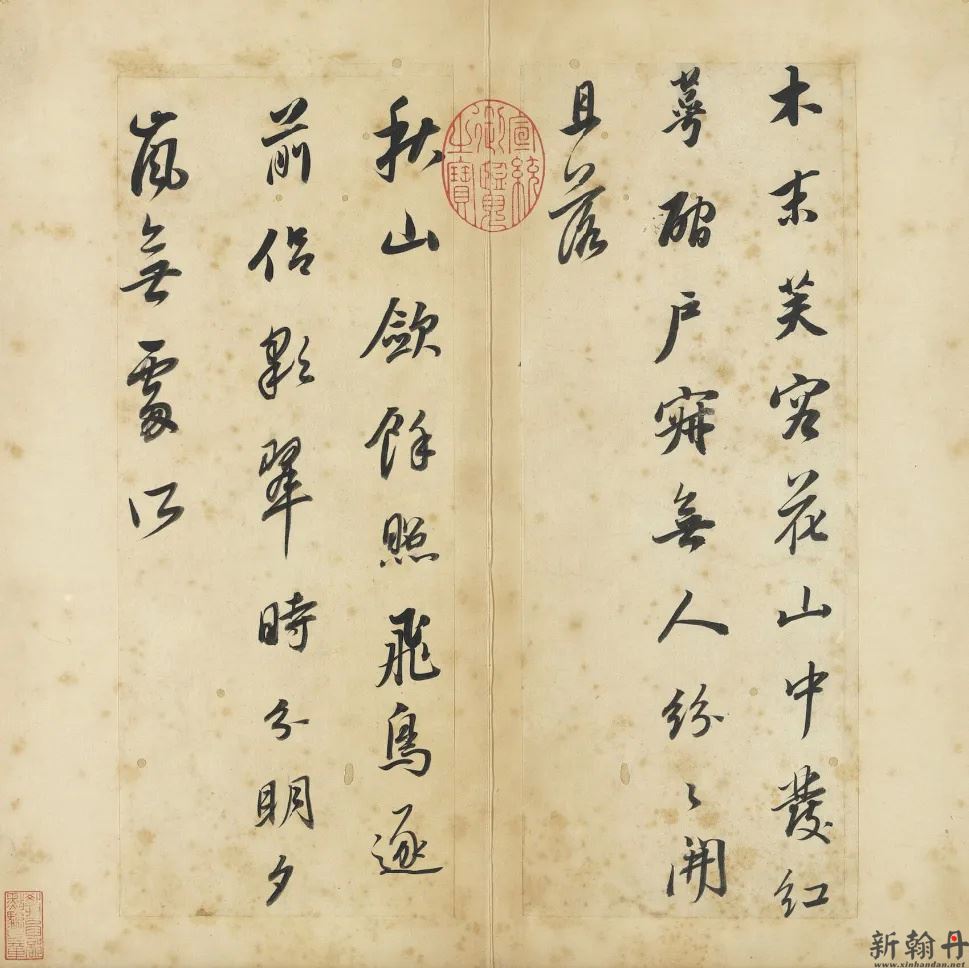 木末芙容花山中發紅
萼磵戶寂無人紛〻開
且落
宣統御覽之寶
秋山歛餘照飛鳥逐
前侣彩翠時分明夕
嵐無處所
新翰丹
www.xinhandan.net